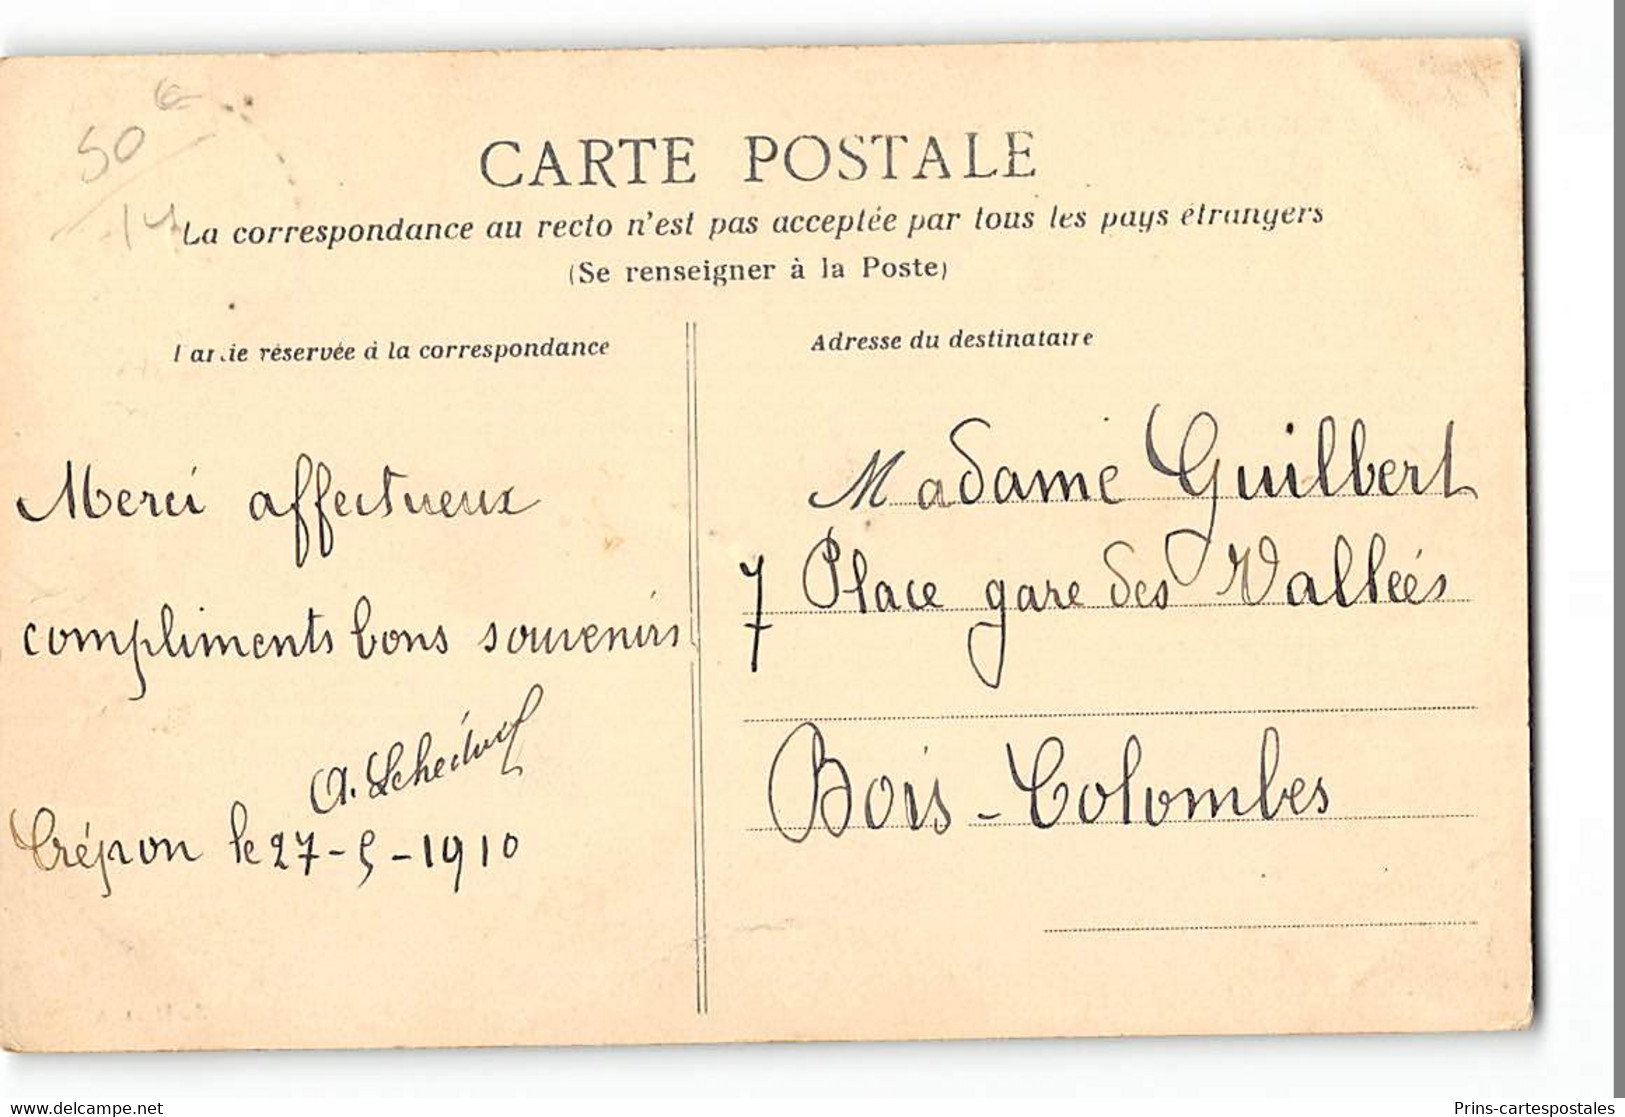 50 €
14
CARTE POSTALE
La correspondance au recto n'est pas acceptée par tous les pays étrangers
(Se renseigner à la Poste)
Partie réservée à la correspondance
Adresse du destinataire
Merci affectueux
compliments bons souvenirs
A.
Crépon le 27-5-1910
Madame Guilbert
7 Place gare des Vallées
Bois-Colombes
www.delcampe.net
Prins-cartespostales